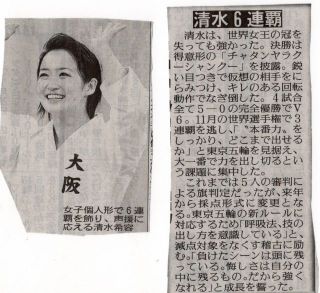 清水6連覇
清水は、世界女王の冠を
失っても強かった。決勝は
得意形の「チャタンヤラク
ーシャンクー」を披露。鋭
い目つきで仮想の相手をに
らみつけ、キレのある回転
動作でなぎ倒した。4試合
全て5―0の完全優勝でV
6。11月の世界選手権で3
連覇を逃し、「"本番力"を
しっかり、どこまで出せる
か」と東京五輪を見据え、
大一番で力を出し切るという
課題に集中した。
これまでは5人の審判に
よる旗判定だったが、来年
から採点形式に変更とな
る。東京五輪の新ルールに
対応するため「呼吸法、技
の出し方を意識している」と、
減点対象をなくす稽古に励
む。「負けたシーンは頭に残
っている。悔しさは自分の
中に残るもの。だから強く
なれる」と成長を誓った。
大阪
女子個人形で6連
覇を飾り、声援に
応える清水希容